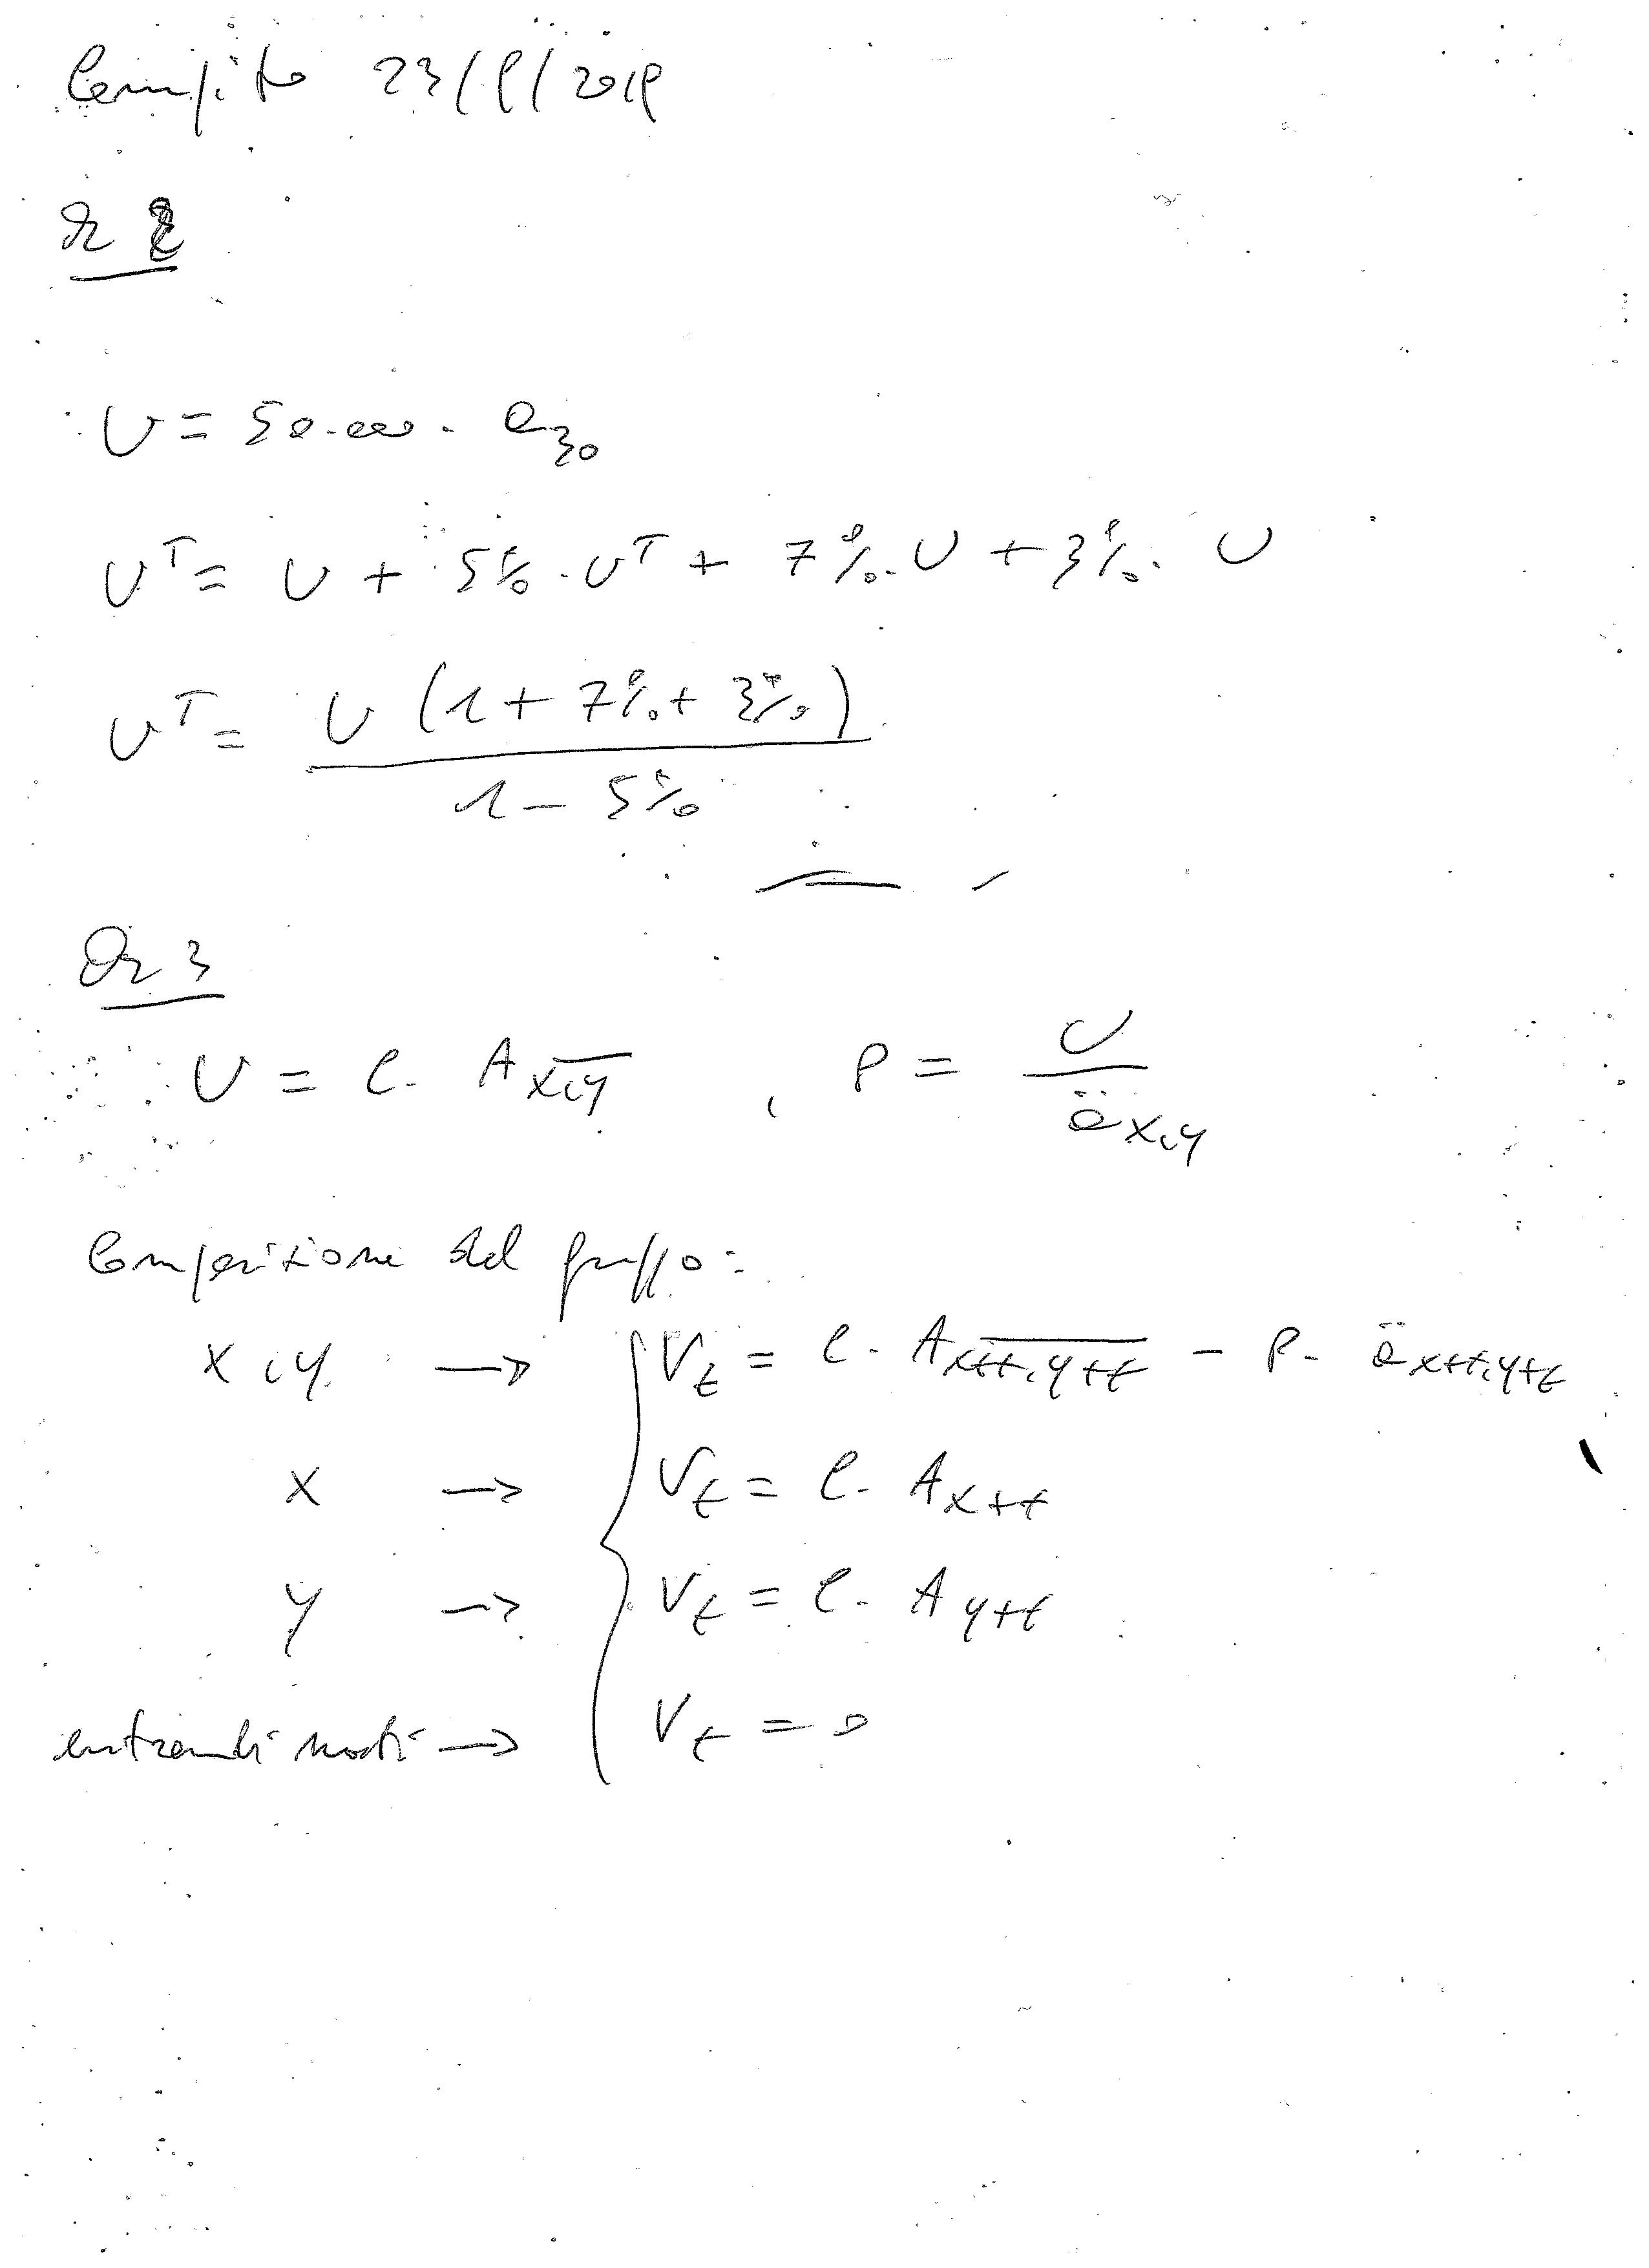 Compito 23/1/2019
Es 2
U = 50.000 · a₃₀
Uᵀ = U + 5% · Uᵀ + 7% · U + 3% · U
Uᵀ = U (1 + 7% + 3%) / (1 - 5%)
Es 3
U = C · A x̅,̅y̅ , P = U / äx,y
Composizione del gruppo:
x,y → Vt = C · A x̅+̅t̅,̅y̅+̅t̅ - P · äx+t,y+t
x → Vt = C · Ax+t
y → Vt = C · Ay+t
entrambi morti → Vt = 0